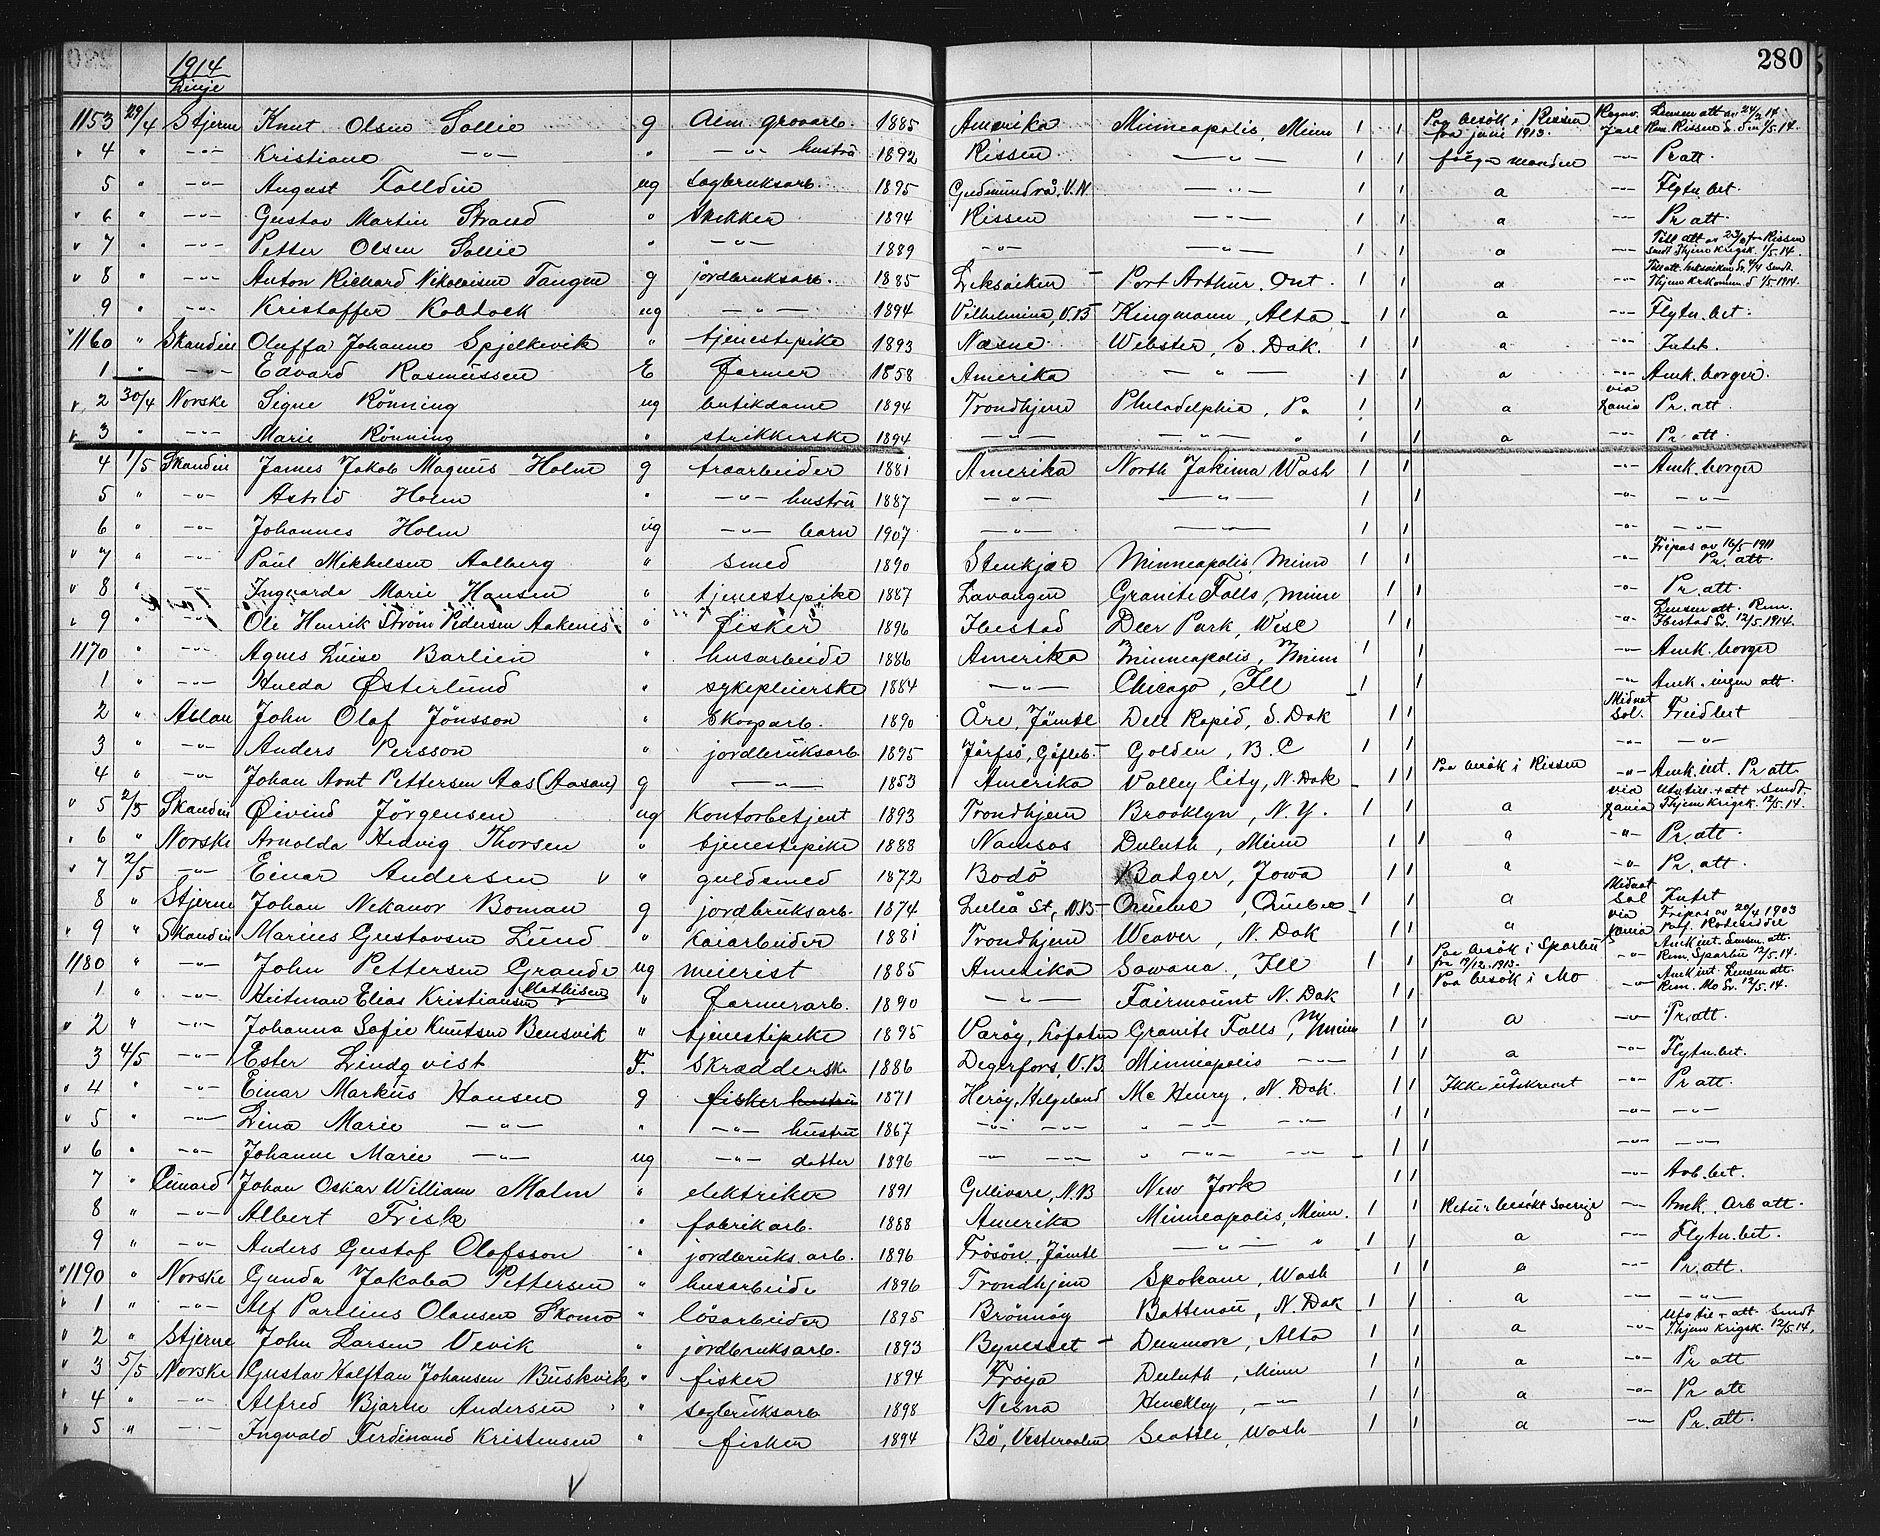 280
1914
Linje
1153 29/4 Stjerne Knut Olsen Sollie g Alm. grovarb. 1885 Amerika Minneapolis, Minn 1 1 Paa besök i Rissen fra juni 1913. Ragnv. Jarl Lensm att av 24/2 14 Rem. Rissen L. den 1/5.14.
" 4 " -"- Kristiane -"- " -"- hustru 1892 Rissen -"- 1 1 følger manden -"- Pr att.
5 " -"- August Falldin ug sagbruksarb. 1895 Gudmundrå, V.N -"- 1 1 a -"- Flytn. bet.
" 6 " -"- Gustav Martin Strand " Snekker 1894 Rissen -"- 1 1 a -"- Pr att.
" 7 " -"- Petter Olsen Sollie " -"- 1889 -"- -"- 1 1 a -"- fra Rissen sendt Thjem Krigsk. 1/5.14.
" 8 " -"- Anton Richard Nikolaisen Tangen g jordbruksarb. 1885 Leksviken Port Arthur. Ont. 1 1 a -"- Till att. Leksviken 4/4 sendt Thjem 1/5 1914.
9 " -"- Kristoffer Kobbock ug -"- 1894 Vilhelmina, V.B Kingmann, Alta 1 1 a -"- Flytn. bet.
" 1160 " Skandin Oluffa Johanne Spjelkevik " tjenestepike 1893 Næsne Webster, S. Dak. 1 1 a -"- Intet.
1 " -"- Edvard Rasmussen E Farmer 1858 Amerika -"- 1 1 a -"- Amk. borger.
" 2 30/4 Norske Signe Rönning ug butikdame 1894 Trondhjem Philadelphia, Pa 1 1 a via Zania Pr. att.
" 3 " -"- Marie Rönning " strikkerske 1894 -"- -"- " 1 1 a -"- Pr att.
4 1/5 Skandin James Jakob Magnus Holm g træarbeider 1881 Amerika North Jakima Wash 1 1 -"- Amk. borger
5 " -"- Astrid Holm " -"- hustru 1887 -"- -"- 1 1 -"- -"-
6 " -"- Johannes Holm ug -"- barn 1907 -"- -"- 1 1 -"- -"-
" 7 " -"- Paul Mikkelsen Aalberg " smed 1890 Stenkjær Minneapolis, Minn 1 1 -"- Fripas av 16/5 1911 Pr. att.
" 8 " -"- Ingvarda Marie Hansen " tjenestepike 1887 Lavangen Granite Falls, Minn 1 1 -"- Pr att.
" 9 " -"- Ole Henrik Ström Pedersen Aakenes " Fisker 1896 Ibestad Deer Park, Wisc 1 1 -"- Lensm att. Rem. Ibestad L. 12/5.1914.
1170 " -"- Agnes Luise Barlien " husarbeide 1886 Amerika Minneapolis, Minn 1 1 -"- Amk. borger
1 " -"- Hulda Østerlund " sykepleierske 1884 -"- Chicago, Ill 1 1 -"- Amk. ingen att.
2 " Allan John Olof Jönsson " Skogsarb. 1890 Åre, Jämtl Dell Rapid, S. Dak 1 1 Midnat Sol. Friedbet
3 " -"- Anders Persson " jordbruksarb. 1895 Järfsö, Gäfleb. Golden, B.C 1 1 -"- -"-
4 " -"- Johan Arnt Pettersen Aas (Aasan) g -"- 1853 Amerika Valley City, N. Dak 1 1 Paa besök i Rissen -"- Amk. int. Pr att.
" 5 2/5 Skandin Øivind Jörgensen ug Kontorbetjent 1893 Trondhjem Brooklyn, N.Y. 1 1 a via Zania Utv. till. + att sendt Thjem Krigsk. 12/5.14.
" 6 " Norske Arnolda Hedvig Thorsen " tjenestepike 1888 Namsos Duluth, Minn 1 1 a -"- Pr. att.
" 7 2/5 -"- Einar Andersen v " guldsmed 1872 Bodö Badger, Jowa 1 1 a -"- Pr. att
8 " Stjerne Johan Nekanor Boman g jordbruksarb. 1874 Luleå St, N.B 1 1 a Midnat Sol Intet
" 9 " Skandin Marius Gustavsen Lund " Kaiarbeider 1881 Trondhjem Weaver, N. Dak 1 1 a via Zania Fripas av 20/4 1903
1180 " -"- John Pettersen Grande ug meierist 1885 Amerika Savana, Ill 1 1 Paa besök i Sparbu fra 19/12.1913. -"- Amk int. Lensm. att. Rem. Sparbu 12/5.14.
1 " -"- Heitman Elias Kristiansen Mathisen " Farmerarb. 1890 -"- Fairmount N. Dak 1 1 Paa besök i Mo -"- Amk int. Lensm att. Rem. Mo L. 12/5.14.
" 2 " -"- Johanna Sofie Knutsen Bensvik " tjenestepike 1895 Værøy, Lofoten Granite Falls, Minn 1 1 a -"- Pr. att.
3 4/5 -"- Ester Lindqvist F. Skrædderske 1886 Degerfors, V.B. Minneapolis -"- 1 1 a -"- Flytn. bet.
" 4 " -"- Einar Markus Hansen g fisker hustru 1871 Herøy, Helgeland Mc Henry, N. Dak. 1 1 a Ikke utskrevet -"- Pr att.
" 5 " -"- Lina Marie -"- " -"- hustru 1867 -"- -"- " -"- -"- 1 1 -"- -"-
" 6 " -"- Johanne Marie -"- ug -"- datter 1896 -"- -"- " -"- -"- 1 1 -"- -"-
7 " Cunard Johan Oskar William Malm " elektriker 1891 Gellivare, N.B New York 1 1 -"- Arb. bet.
8 " -"- Albert Frisk " fabrikarb. 1888 Amerika Minneapolis, Minn. 1 1 Retur besökt Sverige -"- Amk. Arb att.
9 " -"- Anders Gustaf Olofsson " jordbruks.arb. 1896 Frösön, Jämtl -"- " 1 1 a -"- Flytn. bet.
" 1190 " Norske Gunda Jakoba Pettersen " husarbeide 1896 Trondhjem Spokane, Wash 1 1 a -"- Pr. att.
" 1 " -"- Alf Parelius Olausen Skomo " lösarbeider 1895 Brönnöy Battenau, N. Dak 1 1 a -"- -"-
" 2 " Stjerne John Larsen Vevik " jordbruksarb. 1893 Bynesset Denmore, Alta 1 1 a -"- Utv. till. + att. Sendt Thjem Krigsk. 12/5.14.
" 3 5/5 Norske Gustav Halftan Johansen Buskvik " fisker 1894 Fröya Duluth, Minn 1 1 a -"- Pr att
" 4 " -"- Alfred Bjarne Andersen " sagbruksarb 1898 Nesna Hinckley, -"- 1 1 a -"- Pr att
" 5 " -"- Ingvald Ferdinand Kristensen " fisker 1894 Bö, Vesteraalen Seattle, Wash 1 1 a -"- Pr. att.
v